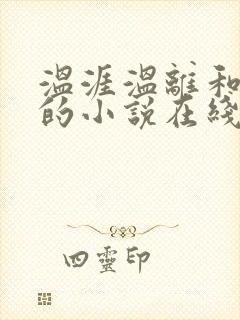 温涯温離和
的小説在綫
四靈印